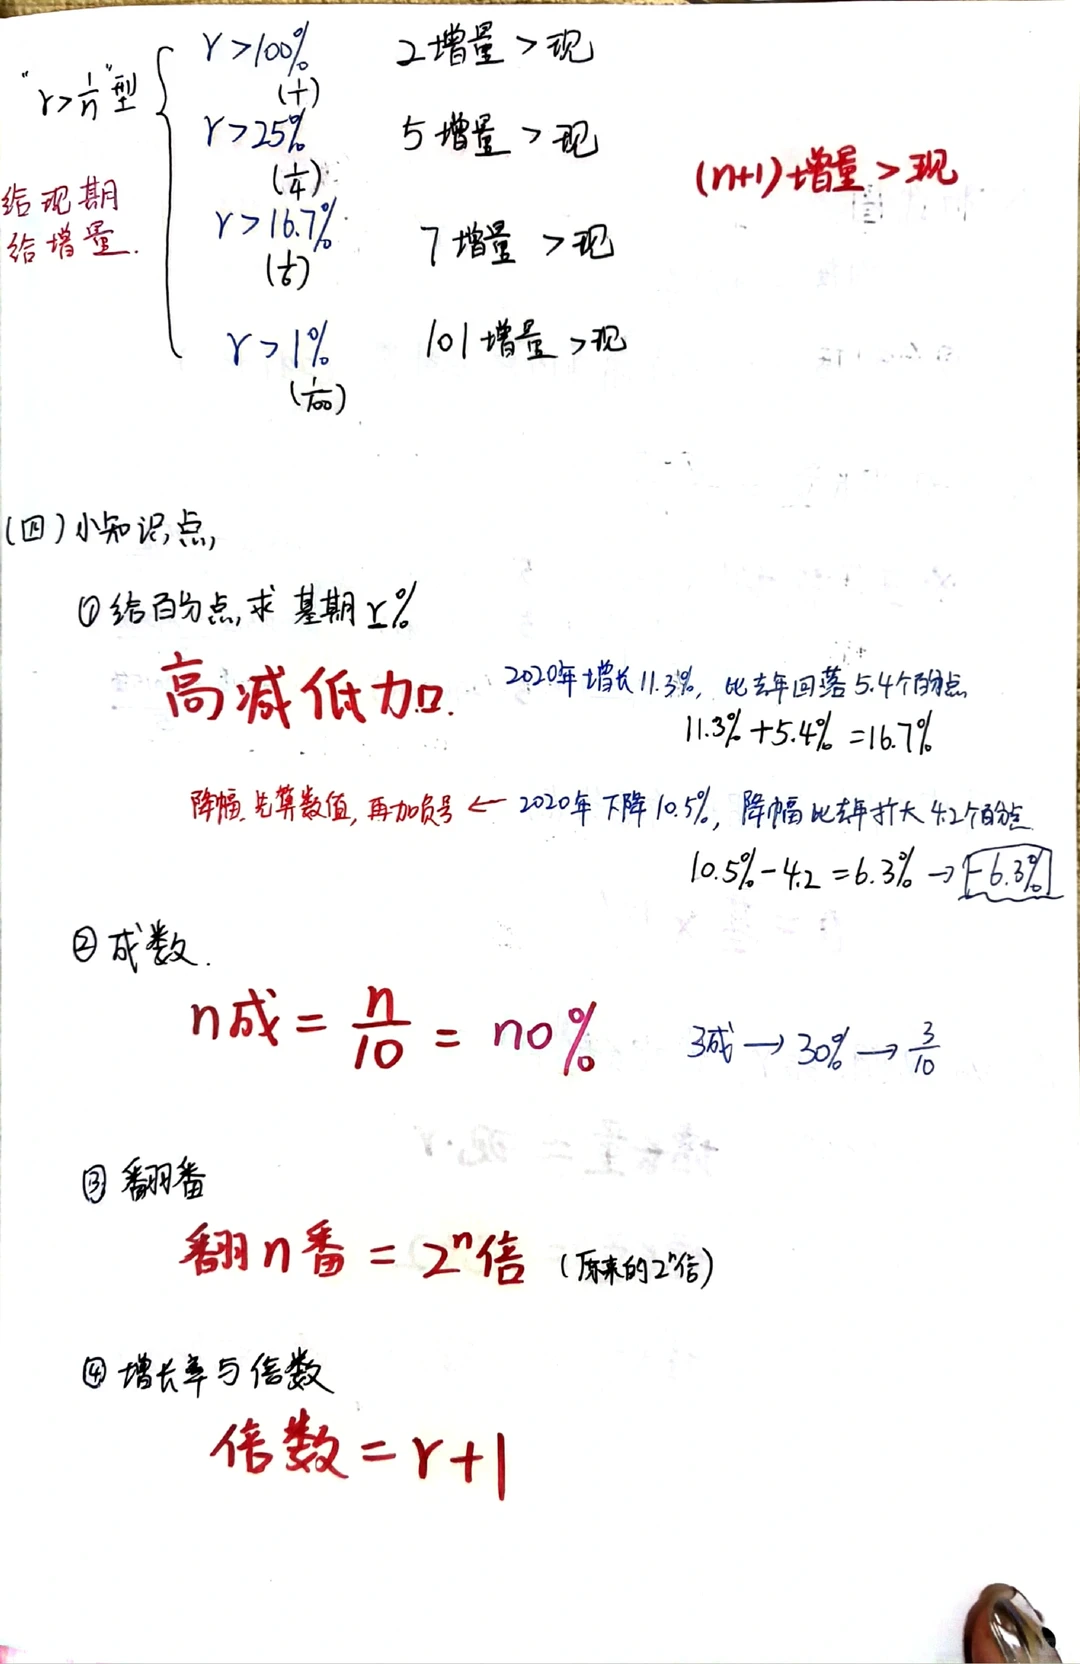 r>100% 2增量>现
(1/1)
"r>1/n"型
r>25% 5增量>现
(1/4)
(n+1)增量>现
给现期
给增量.
r>16.7% 7增量>现
(1/6)
r>1% 101增量>现
(1/100)
(四)小知识点,
①给百分点,求 基期r%
高减低加.
2020年增长11.3%, 比去年回落5.4个百分点
11.3%+5.4%=16.7%
降幅.先算数值,再加负号 ← 2020年下降10.5%, 降幅比去年扩大4.2个百分点
10.5%-4.2=6.3% → -6.3%
②成数.
n成=n/10=n0%
3成→30%→3/10
③翻番
翻n番=2ⁿ倍 (原来的2ⁿ倍)
④增长率与倍数
倍数=r+1